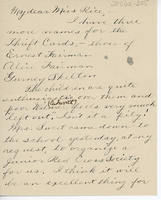 My dear Miss Rice,
I have three
more names for the
Thrift Cards, - those of
Ernest Fairman
Ollie Fairman
Gurney Skelton
The children are quite
enthusiastic over them and
poor Minnie feels very much
left out. Isn't it a pity?
Mrs. Swet came down to
the school yesterday, at my
request, to organize a
Junior Red Cross Society
for us. I think it will
be an excellent thing for